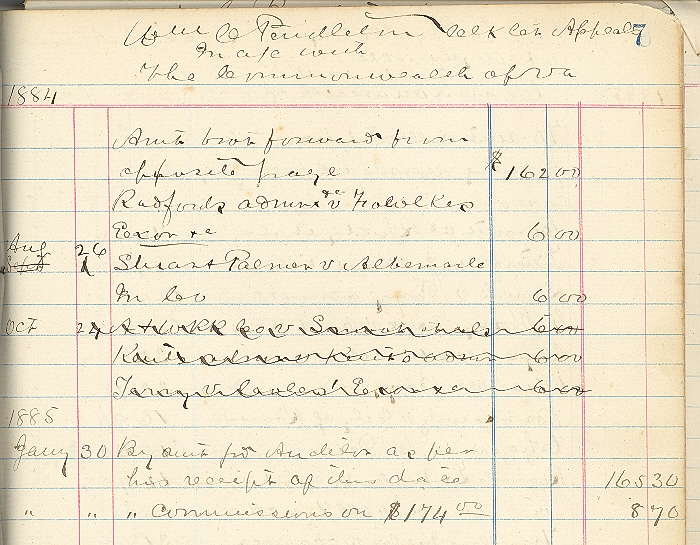 Wm C Pendleton Clk Ct Appeals 7
In a/c with
The Commonwealth of Va
1884
Amt brot forward from
opposite page $162 00
Radfords admrx &c v Fowlkes
Exor &c 6 00
Aug 26 Stuart Palmer v Albemarle
Sept 1
In Co 6 00
Oct 24 v 6 00
admr v admr 6 00
Terry v Exor &c 6 00
1885
Jany 30 By amt pd Auditor as per
his receipt of this date 165 30
" " " Commissions on $174 00 8 70